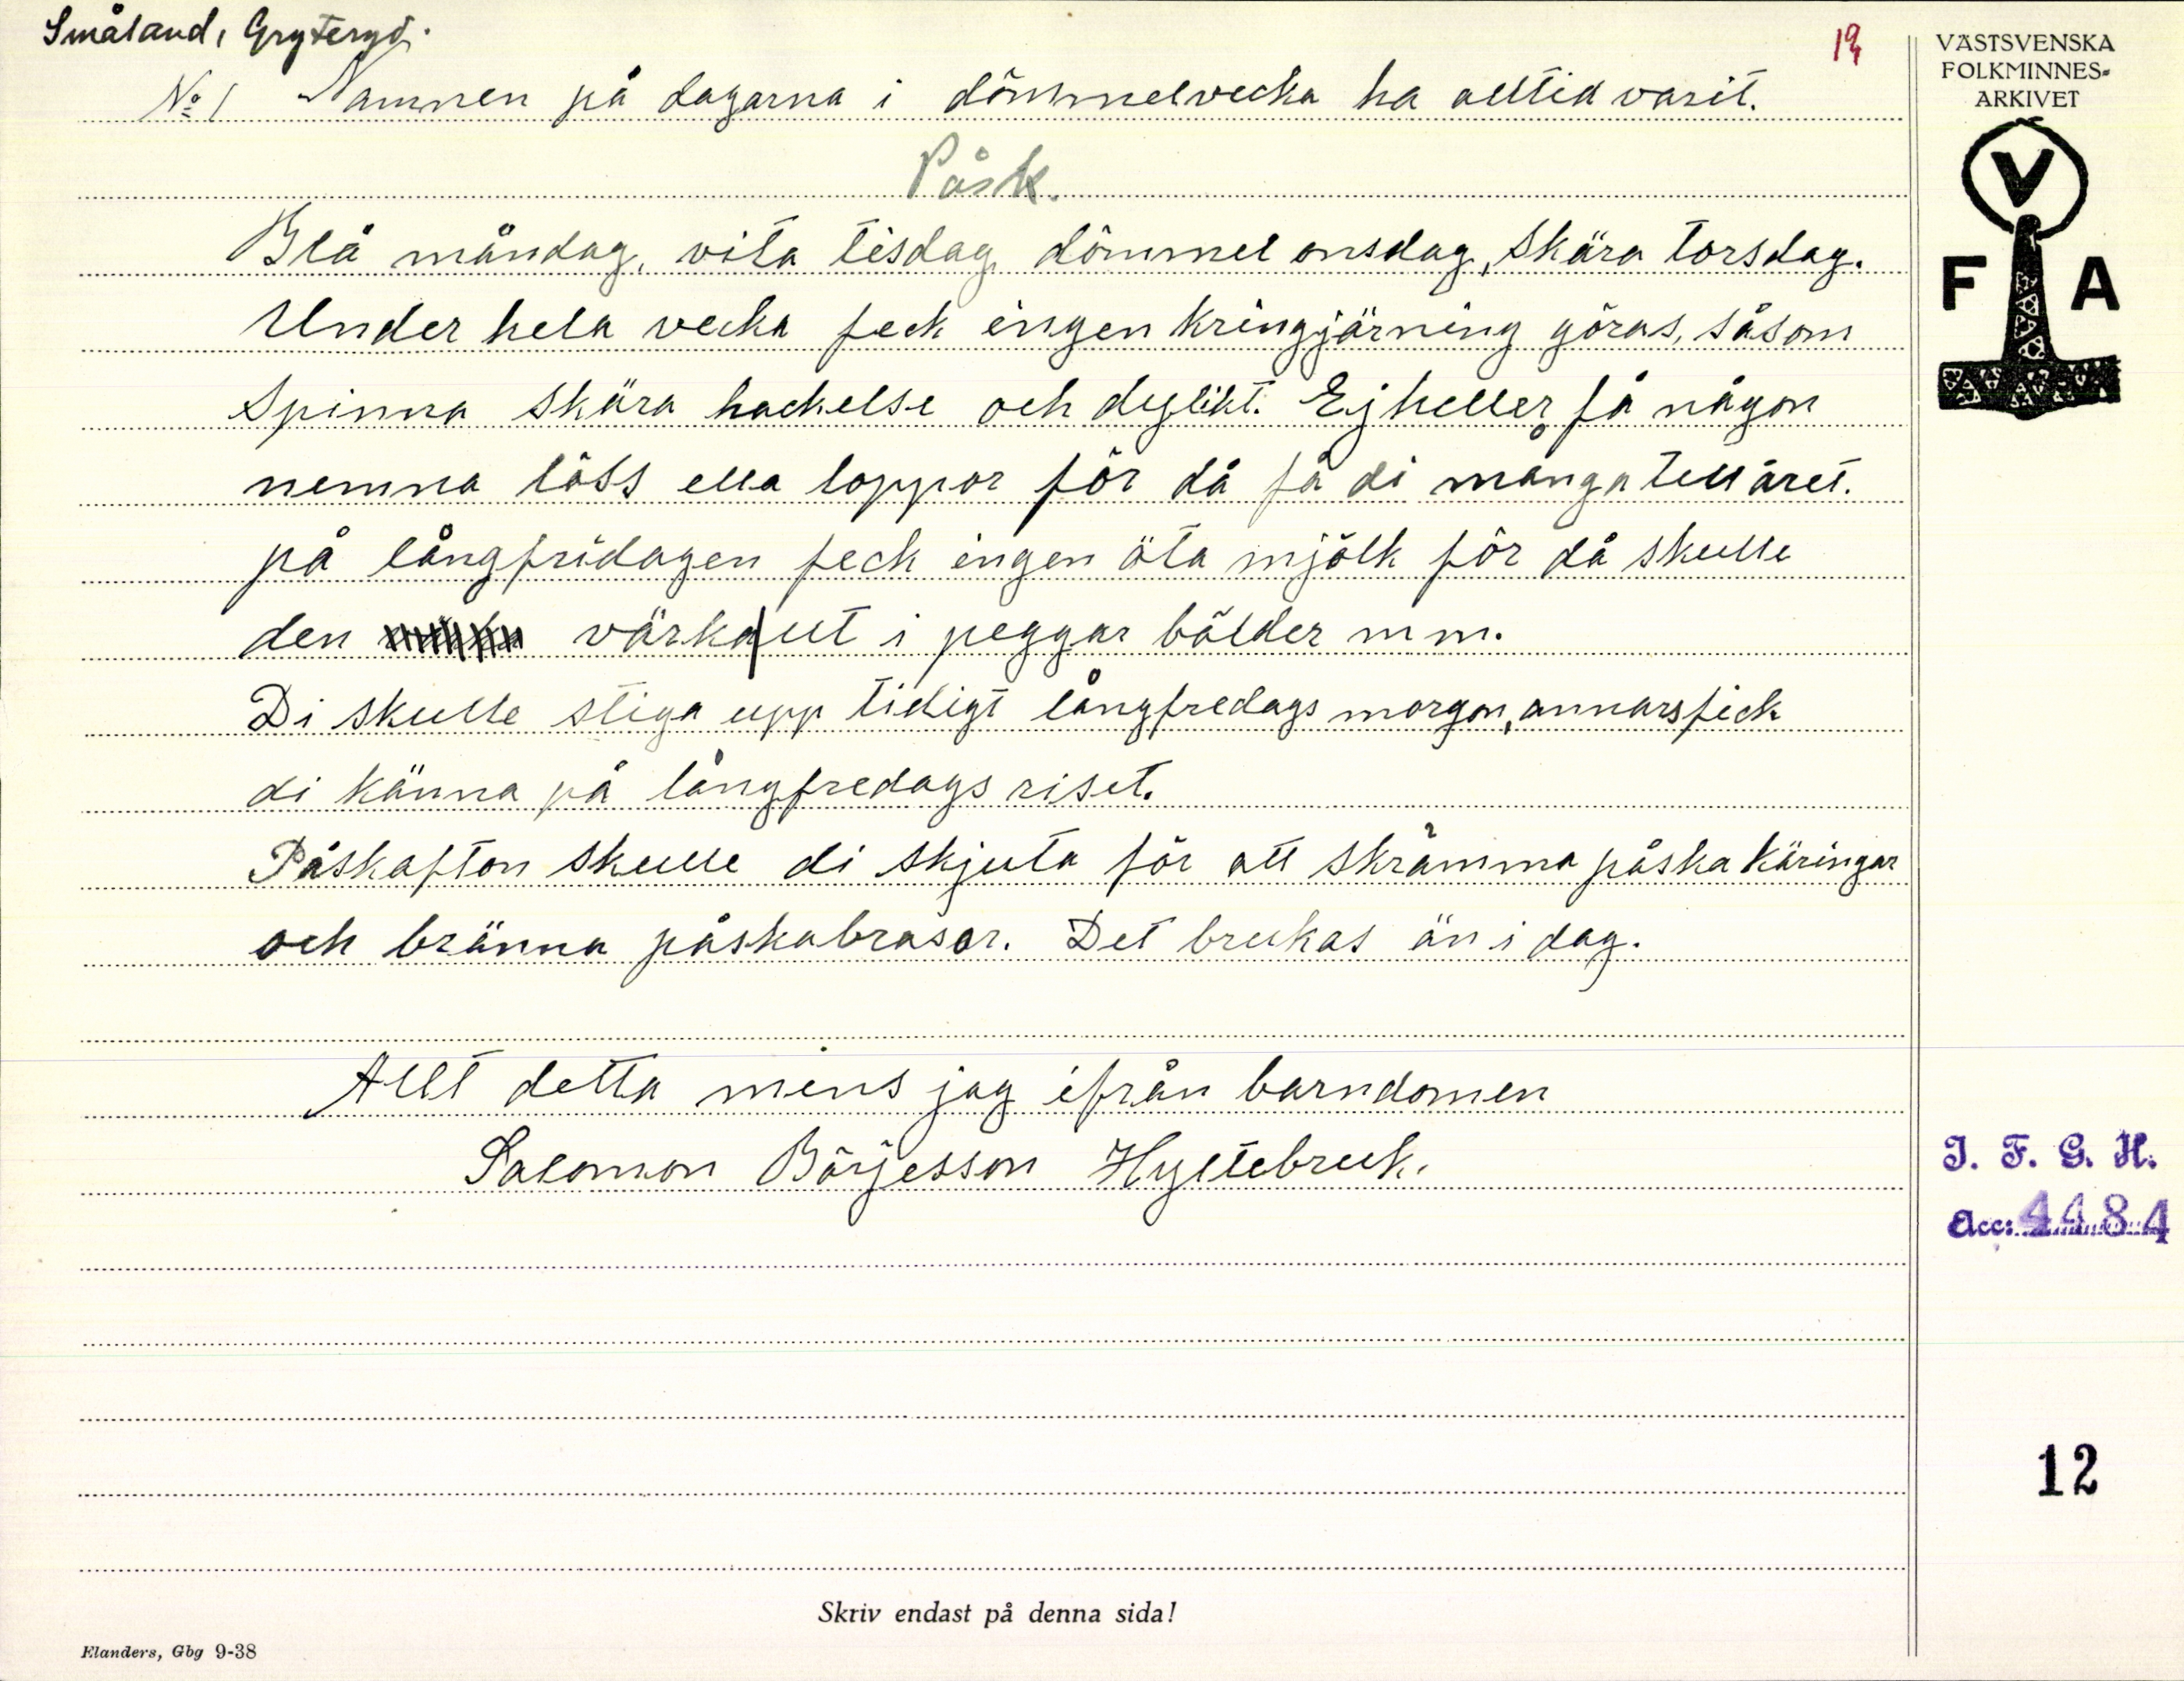 Småland, Gryteryd.
19
No 1 Namnen på dagarna i dömmelvecka ha alltid varit.
Påsk.
Blå måndag, vita tisdag, dömmel onsdag, Skära torsdag.
Under hela vecka feck ingen Kringgjärning göras, såsom
Spinna Skära hackelse och deglikt. Ej heller få någon
nemna löss ella loppor för då få di många tell året.
på långfridagen feck ingen äta mjölk för då skulle
den värka ut i peggar bölder m m.
Di skulle stiga upp tidigt långfredags morgon, annars fick
di Känna på långfredags riset.
Påskafton skulle di skjuta för att skrämma påska Käringar
och bränna påskabrasor. Det brukas än i dag.
Allt detta mins jag ifrån barndomen
Salomon Börjesson Hyltebruk.
VÄSTSVENSKA
FOLKMINNES-
ARKIVET
V
F A
I. F. G. H.
Acc: 4484
12
Skriv endast på denna sida!
Elanders, Gbg 9-38